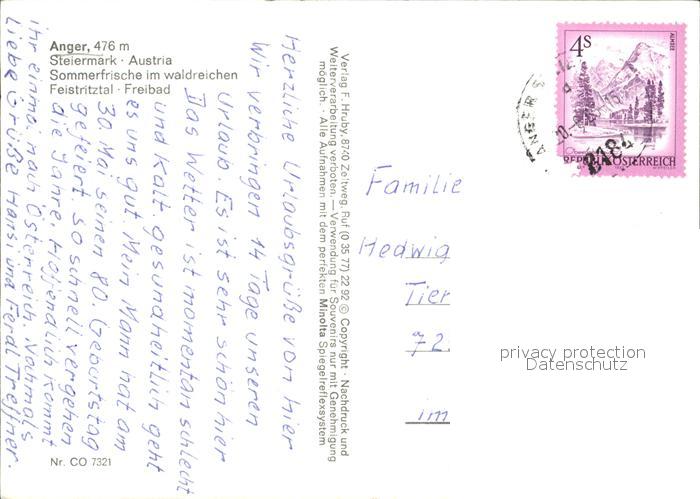 Anger, 476 m
Steiermark · Austria
Sommerfrische im waldreichen
Feistritztal · Freibad
Herzliche Urlaubsgrüße von hier
Wir verbringen 14 Tage unseren
Urlaub. Es ist sehr schön hier
Das Wetter ist momentan schlecht
und kalt. gesundheitlich geht
es uns gut. Mein Mann hat am
30. Mai seinen 80. Geburtstag
gefeiert. so schnell vergehen
die Jahre. Hoffendlich kommt
ihr einmal nach Österreich. Nochmals
Liebe Grüße Hansi und Ferdl Treffner.
Nr. CO 7321
Verlag F. Hruby, 8740 Zeltweg, Ruf (0 35 77) 22 92 © Copyright · Nachdruck und
Weiterverarbeitung verboten. — Verwendung für Souvenirs nur mit Genehmigung
möglich. · Alle Aufnahmen mit dem perfekten Minolta Spiegelreflexsystem
4s
ALMSEE
REPUBLIK ÖSTERREICH
ANGER
8184
Familie
Hedwig
Tier
72
im
privacy protection
Datenschutz